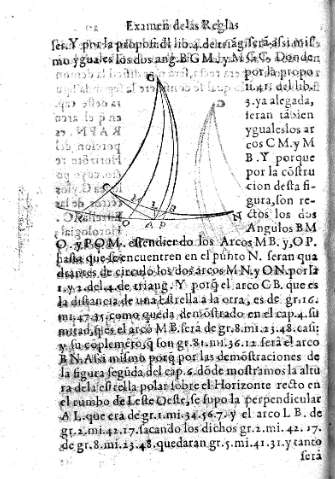 Examen de las Reglas
ses. Y por la propoſi. del lib. 4. de triãg. ſerã aſsi miſ-
mo yguales los dos ang. B G M. y M G C. Donde
por la propo
ſi. 41. del lib.
3. ya alegada,
ſeran tãbien
yguales los ar
cos C M. y M
B. Y porque
por la cõſtru
cion deſta fi-
gura, ſon re-
ctos los dos
Angulos B M
O. y P O M. eſtendiendo los Arcos M B. y, O P.
haſta que ſe encuentren en el punto N. ſeran qua
drantes de circulo los dos arcos M N. y O N. por la
1. y 2. del 4. de triang. Y porq̃ el arco C B. que es
la diſtancia de una eſtrella a la otra, es de gr. 16.
mi. 47. 35. como queda demoſtrado en el cap. 4. ſu
mitad, q̃ es el arco M B. ſerà de gr. 8. mi. 23. 48. caſi:
y ſu coplemẽto, q̃ ſon gr. 81. mi. 36. 12. ſerà el arco
B N. Aſsi miſmo porq̃ por las demoſtraciones de
la figura ſegũda del cap. 6. dõde moſtramos la altu
ra de la eſtrella polar ſobre el Horizonte recto en
el rumbo de Leſte Oeſte, ſe ſupo la perpendicular
A L. que era de gr. 1. mi. 34. 56. 7. y el arco L B. de
gr. 2. mi. 42. 17. ſacando los dichos gr. 2. mi. 42. 17.
de gr. 8. mi. 23. 48. quedaran gr. 5. mi. 41. 31. y tanto
ſerà
G
G
C
M
B
R
O
A
P
N